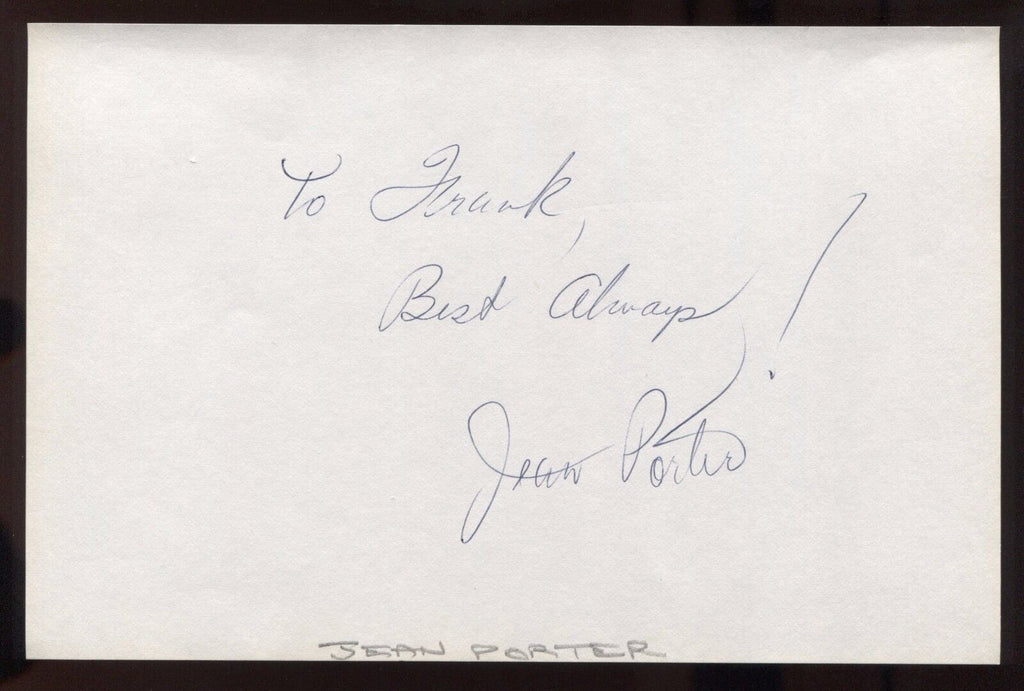 To Frank,
Best Always!
Jean Porter
JEAN PORTER